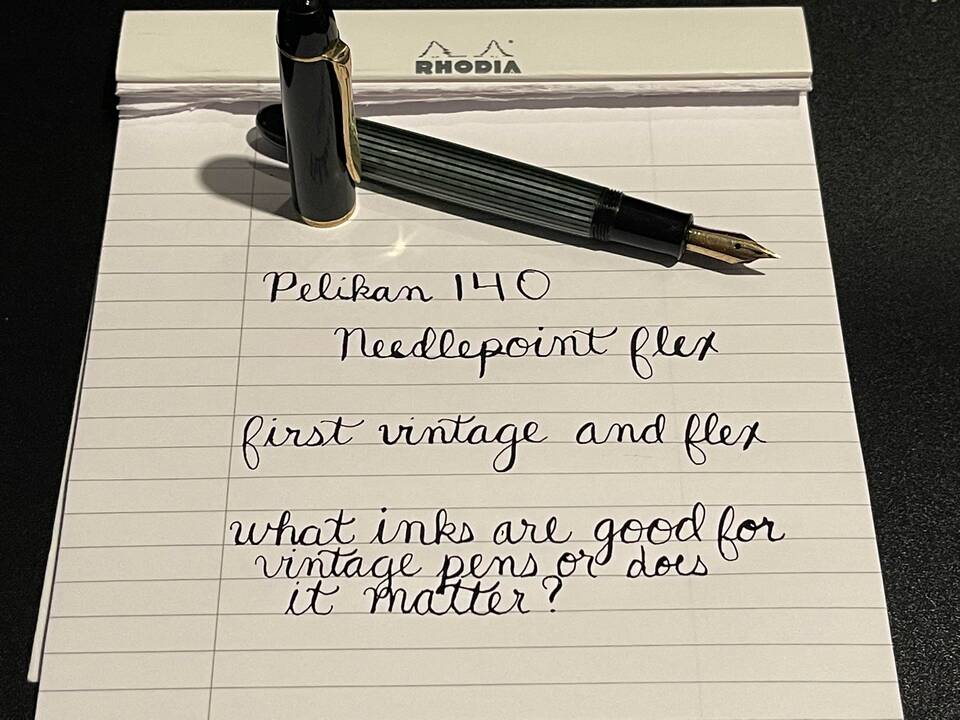 RHODIA
Pelikan 140
Needlepoint flex
first vintage and flex
what inks are good for
vintage pens or does
it matter?